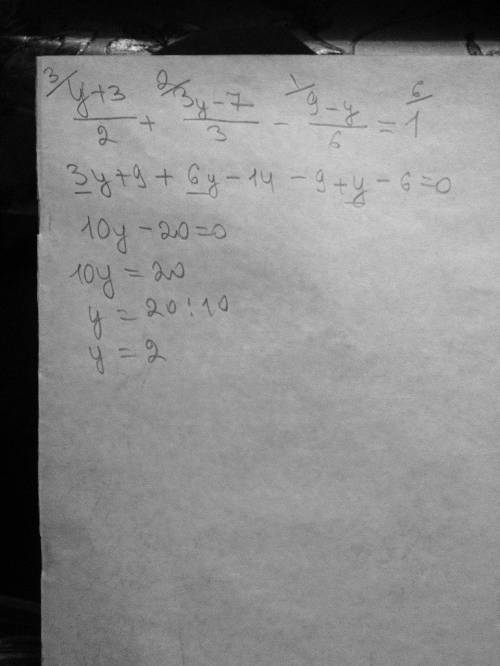 3/ y+3/2 + 2/ 3y-7/3 - 1/ 9-y/6 = 6/ 1
3y+9+6y-14-9+y-6=0
10y-20=0
10y=20
y=20:10
y=2